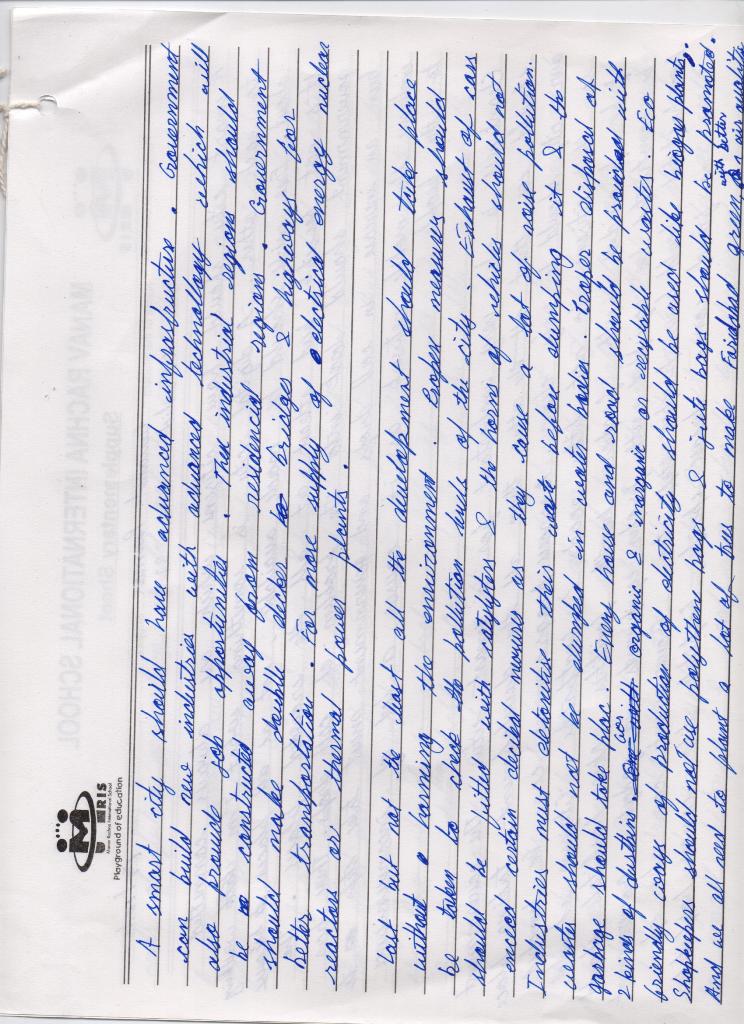 MRIS
Manav Rachna International School
Playground of education
A smart city should have advanced infrastructure. Government
can build new industries with advanced technology which will
also provide job opportunities. The industrial regions should
be constructed away from residencial regions. Government
should make double decker bridges & highways for
better transportation. For more supply of electrical energy nuclear
reactors or thermal power plants.
Last but not the least all the development should take place
without harming the environment. Proper measures should
be taken to check the pollution levels of the city. Exhaust of cars
should be fitted with catalysters & the horns of vehicles should not
exceed certain decibel measures as they cause a lot of noise pollution.
Industries must detoxitise their waste before dumping it & the
waste should not be dumped in water bodies. Proper disposal of
garbage should take place. Every house and road should be provided with
2 kinds of dustbins, for organic & inorganic or recyclable wastes. Eco
friendly ways of production of electricity should be used like biogas plants.
Shopkeepers should not use polythene bags & jute bags should be promoted.
And we all need to plant a lot of trees to make Faridabad green with better air quality
MANAV RACHNA INTERNATIONAL SCHOOL
Supplementary Sheet